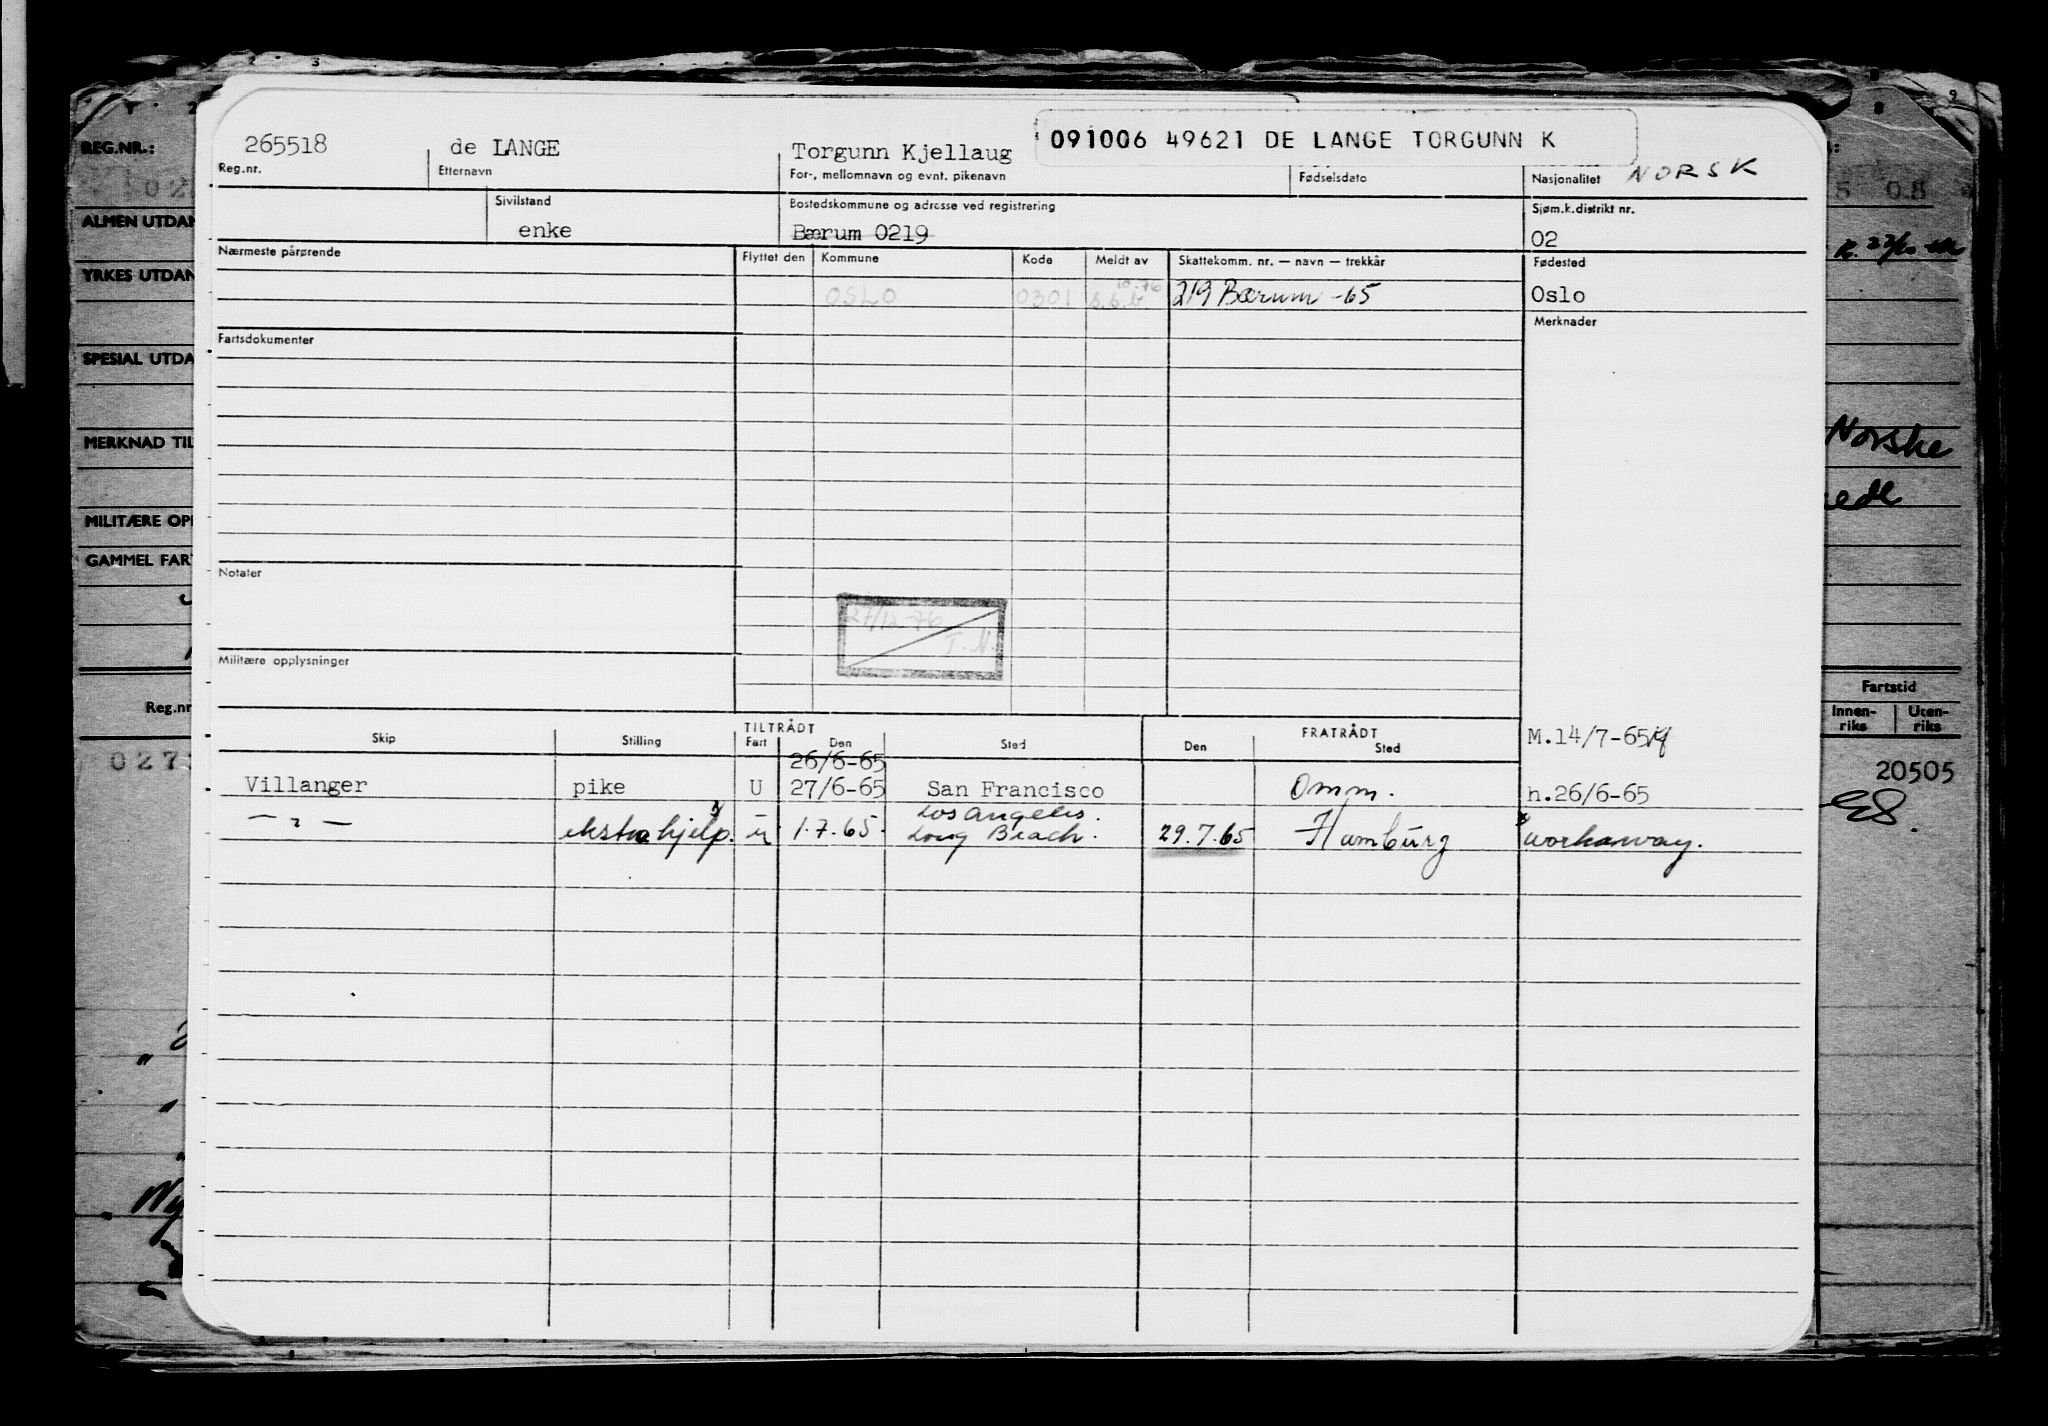 REG.NR.:
265518
Reg.nr.
de LANGE
Etternavn
Torgunn Kjellaug
For-, mellomnavn og evnt. pikenavn
091006 49621 DE LANGE TORGUNN K
Fødselsdato
Nasjonalitet NORSK
ALMEN UTDAN
Sivilstand
enke
Bostedskommune og adresse ved registrering
Bærum 0219
Sjøm.k.distrikt nr.
02
YRKES UTDAN
Nærmeste pårørende
Flyttet den
Kommune
Kode
Meldt av
Skattekomm. nr. — navn — trekkår
Fødested
OSLO
0301
10.76
s.b.b
219 Bærum -65
Oslo
Fartsdokumenter
Merknader
SPESIAL UTDA
MERKNAD TIL
Norske
MILITÆRE OPP
GAMMEL FAR
Notater
27/12 76
T.N.
Militære opplysninger
Reg.nr
Fartstid
Innen-
riks
Uten-
riks
Skip
Stilling
TILTRÅDT
Fart
Den
Sted
FRATRÅDT
Den
Sted
M.14/7-65
26/6-65
Villanger
pike
U
27/6-65
San Francisco
Omm.
h.26/6-65
— " —
ekstrahjelp.
u
1.7.65.
Los Angeles.
Long Beach.
29.7.65
Hamburg
x workaway.
027
20505